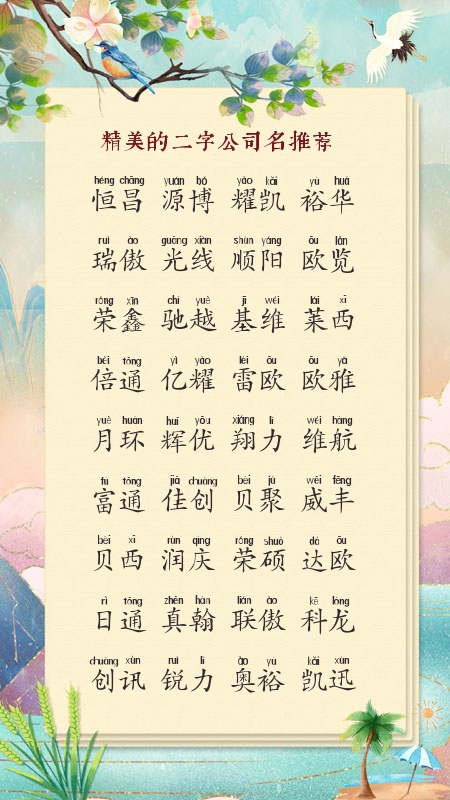 精美的二字公司名推荐
héng chāng yuán bó yào kǎi yù huá
恒昌 源博 耀凯 裕华
ruì ào guāng xiàn shùn yáng ōu lǎn
瑞傲 光线 顺阳 欧览
róng xīn chí yuè jī wéi lái xī
荣鑫 驰越 基维 莱西
bèi tōng yì yào léi ōu ōu yǎ
倍通 亿耀 雷欧 欧雅
yuè huán huī yōu xiáng lì wéi háng
月环 辉优 翔力 维航
fù tōng jiā chuàng bèi jù wēi fēng
富通 佳创 贝聚 威丰
bèi xī rùn qìng róng shuò dá ōu
贝西 润庆 荣硕 达欧
rì tōng zhēn hàn lián ào kē lóng
日通 真翰 联傲 科龙
chuàng xùn ruì lì ào yù kǎi xùn
创讯 锐力 奥裕 凯迅